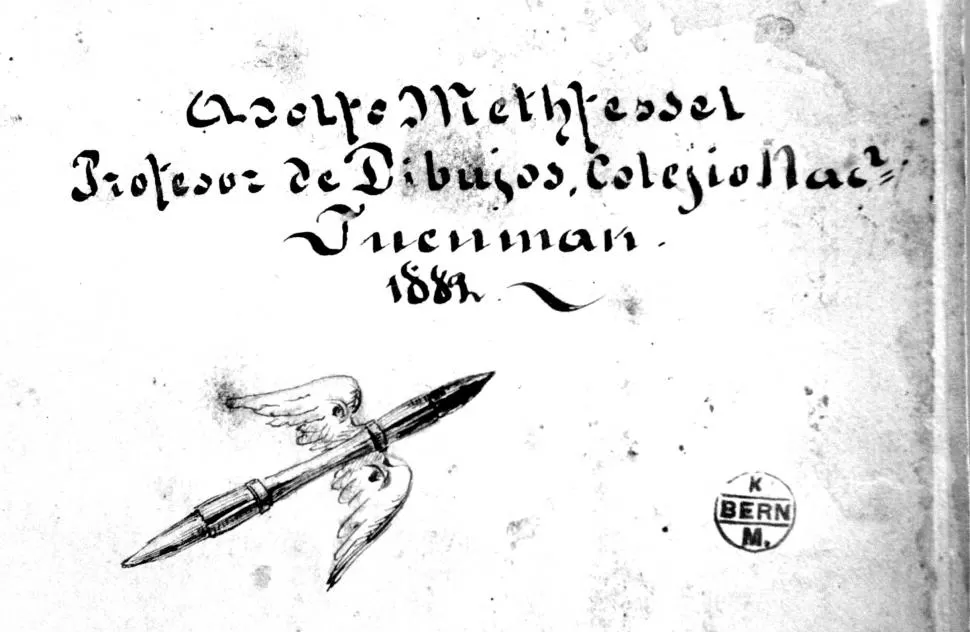 Adolfo Methfessel
Profesor de Dibujos, Colegio Nac²
Tucuman.
1882
K
BERN
M.